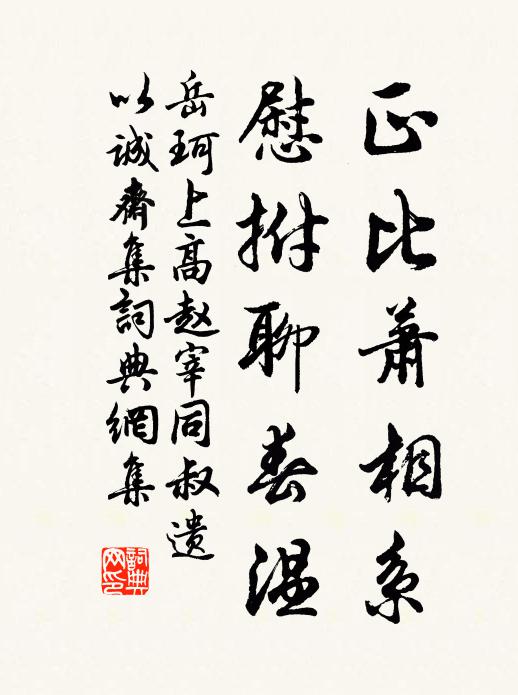 正比蕭相系
慰拊聊春温
岳珂上高赵宰同叔遗
以誠齋集詞典網集
詞典网印